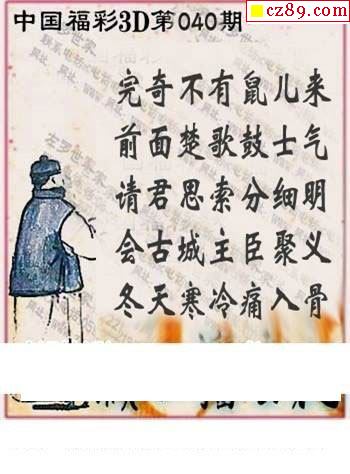 cz89.com
中国福彩3D第040期
完奇不有鼠儿来
前面楚歌鼓士气
请君思索分细明
会古城主臣聚义
冬天寒冷痛入骨